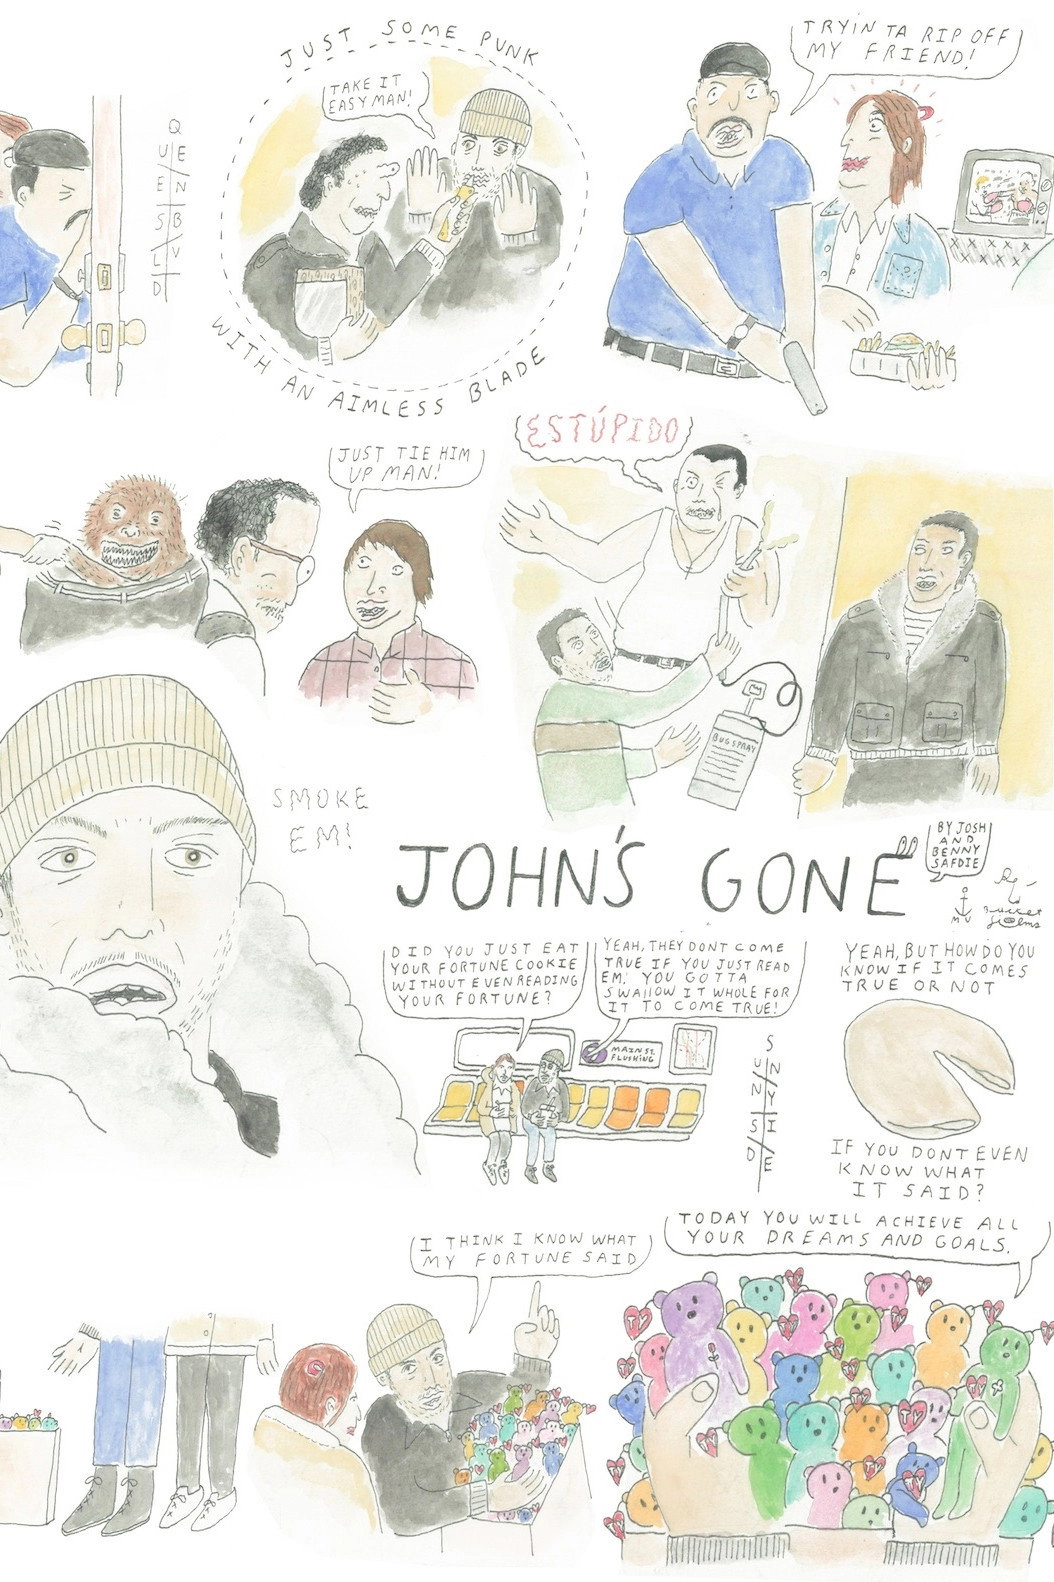 QUEENSBLVD
JUST SOME PUNK
TAKE IT
EASY MAN!
WITH AN AIMLESS BLADE
TRYIN TA RIP OFF
MY FRIEND!
JUST TIE HIM
UP MAN!
ESTÚPIDO
BUG SPRAY
SMOKE
EM!
JOHN'S GONE
BY JOSH
AND
BENNY
SAFDIE
M V
DID YOU JUST EAT
YOUR FORTUNE COOKIE
WITHOUT EVEN READING
YOUR FORTUNE?
YEAH, THEY DONT COME
TRUE IF YOU JUST READ
EM. YOU GOTTA
SWALLOW IT WHOLE FOR
IT TO COME TRUE!
7
MAIN ST.
FLUSHING
SUNNYSIDE
YEAH, BUT HOW DO YOU
KNOW IF IT COMES
TRUE OR NOT
IF YOU DONT EVEN
KNOW WHAT
IT SAID?
I THINK I KNOW WHAT
MY FORTUNE SAID
TODAY YOU WILL ACHIEVE ALL
YOUR DREAMS AND GOALS.
TY
TY
TY
TY
TY
TY